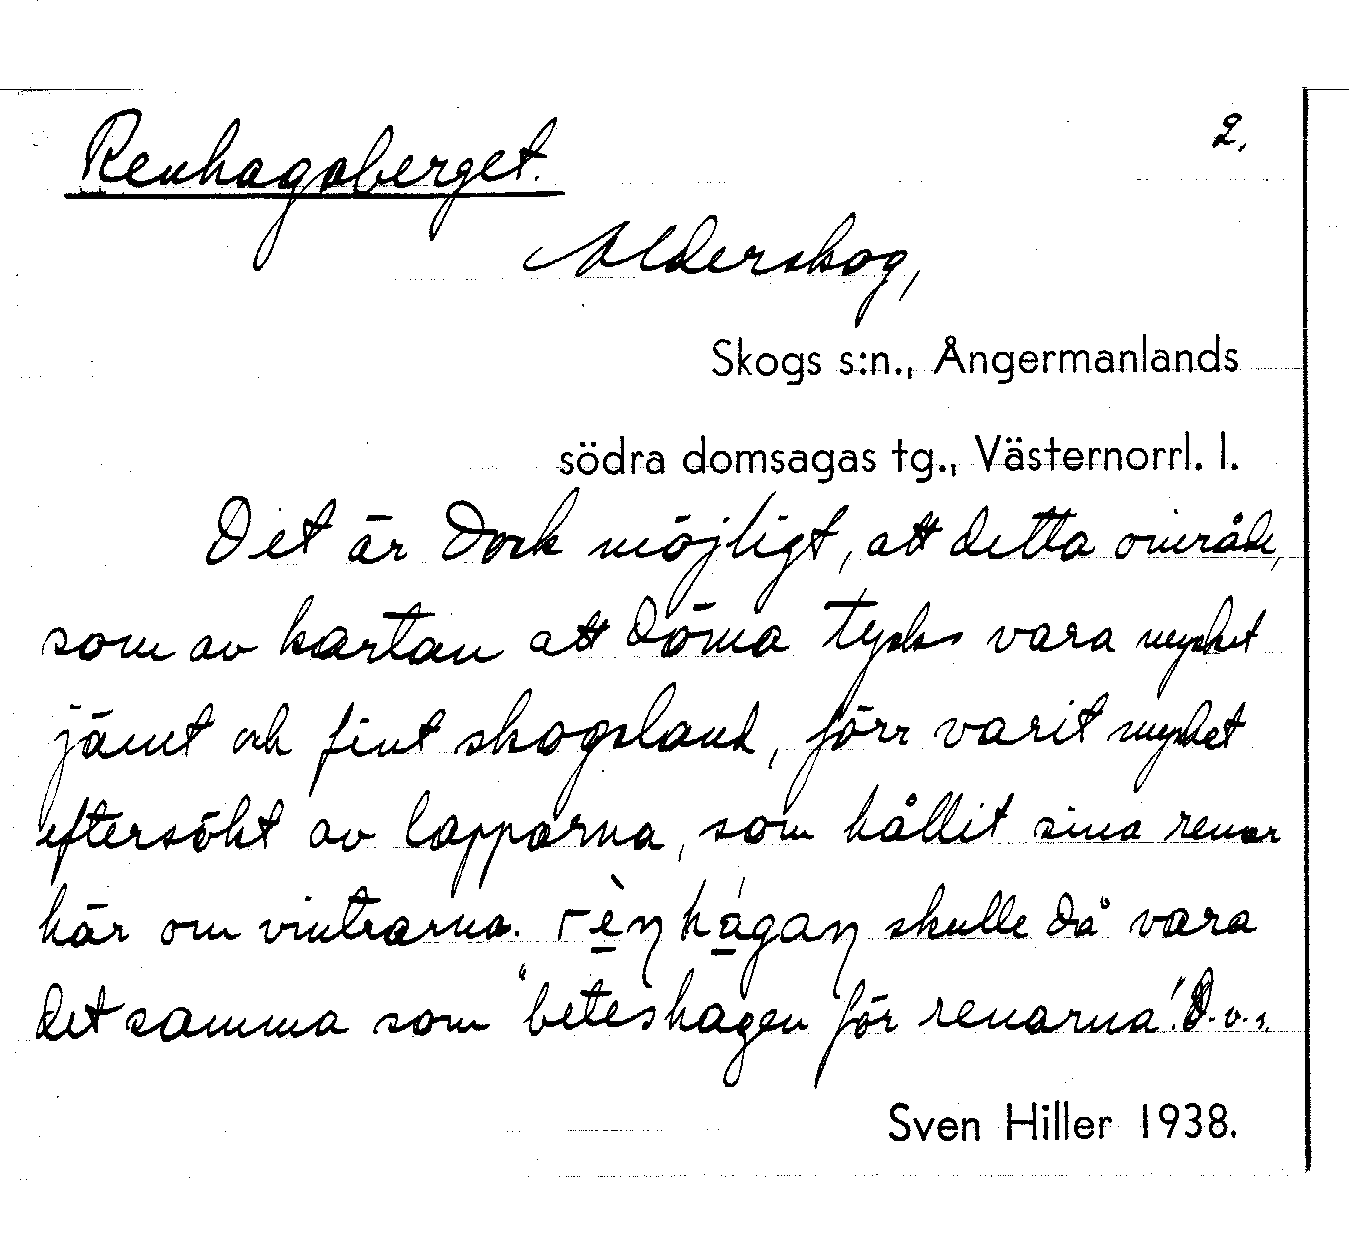 Renhagsberget. 2.
Alderskog,
Skogs s:n., Ångermanlands
södra domsagas tg., Västernorrl. l.
Det är dock möjligt, att detta område,
som av kartan att döma tycks vara mycket
jämt och fint skogsland, förr varit mycket
eftersökt av lapparna, som hållit sina renar
här om vintrarna. rèn hágan skulle då vara
det samma som "beteshagen för renarna". D.v.s.
Sven Hiller 1938.